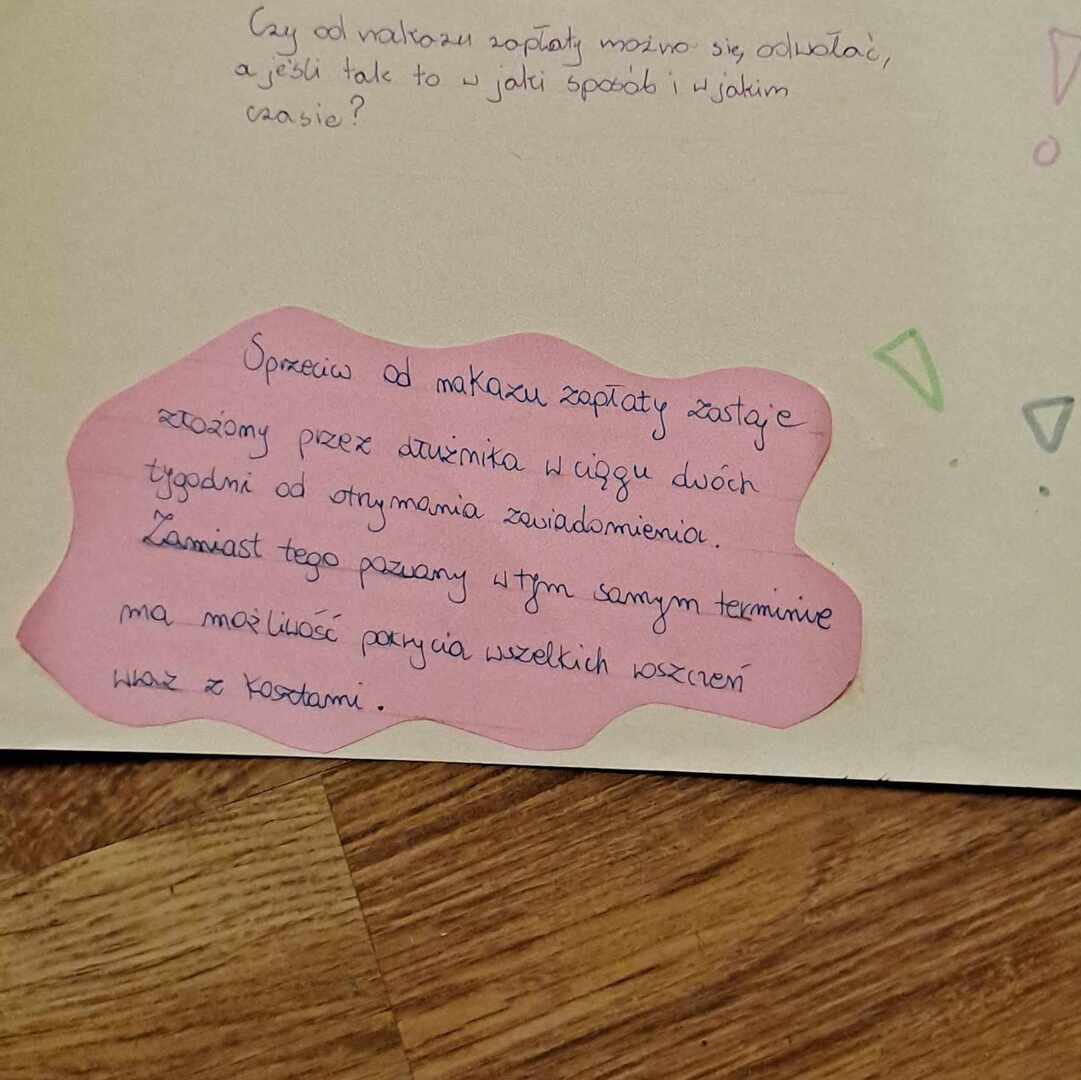 Czy od nakazu zapłaty można się odwołać,
a jeśli tak to w jaki sposób i w jakim
czasie?
Sprzeciw od nakazu zapłaty zostaje
złożony przez dłużnika w ciągu dwóch
tygodni od otrymania zawiadomienia.
Zamiast tego pozwany w tym samym terminie
ma możliwość pokrycia wszelkich roszczeń
wraz z kosztami.